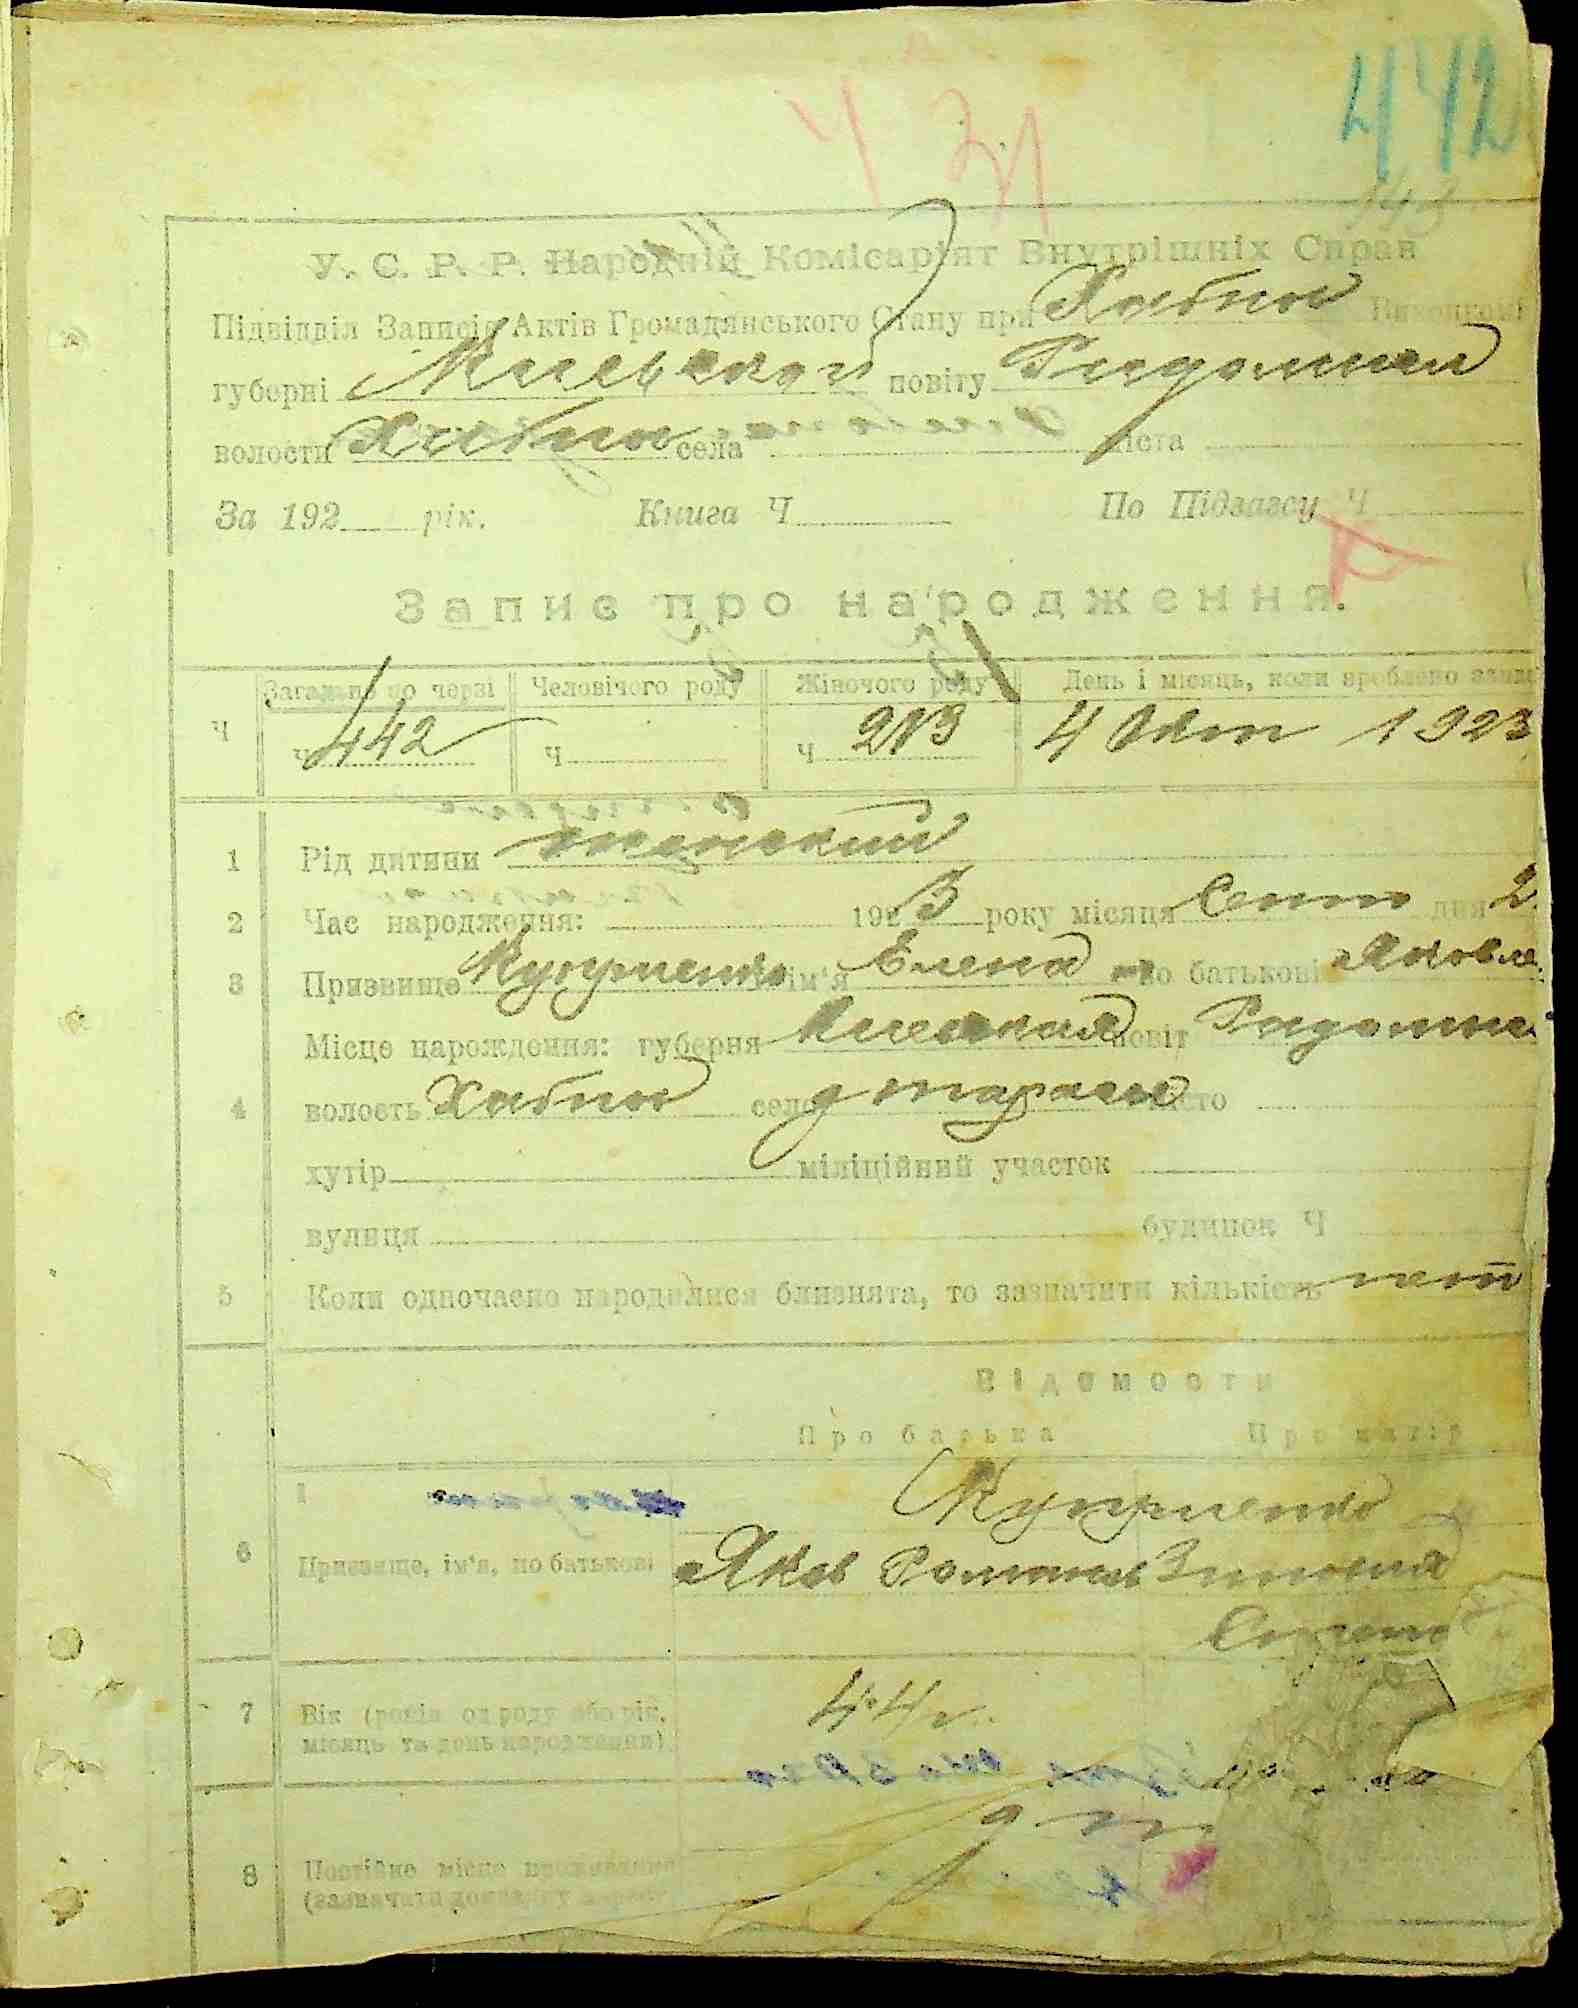 442
431
У. С. Р. Р. Народній Комісаріят Внутрішніх Справ
Підвідділ Записів Актів Громадянського Стану при Хабно Виконкомі
губерні Киевской повіту Радомыс
волости Хабно села міста
За 192 рік. Книга Ч По Підзагсу Ч
Запис про народження.
Ч Загально по черзі Человічого роду Жіночого роду День і місяць, коли зроблено запис
Ч 442 Ч Ч 213 4 Окт 1923
1 Рід дитини женский
2 Час народження: 1923 року місяця Сент дня 2
3 Призвище Кухренко ім'я Елена по батькові Яковле
Місце народження: губерня Киевская повіт Радомыс
4 волость Хабно село д Тараси місто
хутір міліційний участок
вулиця будинок Ч
5 Коли одночасно народилися близнята, то зазначити кількість нет
Відомости
Про батька Про матір
6 Призвище, ім'я, по батькові
Яков Романов Зиновия
7 Вік (років од роду або рік, 44 г.
місяць та день народження)
8 Постійне місце проживання
(зазначити докладну адресу